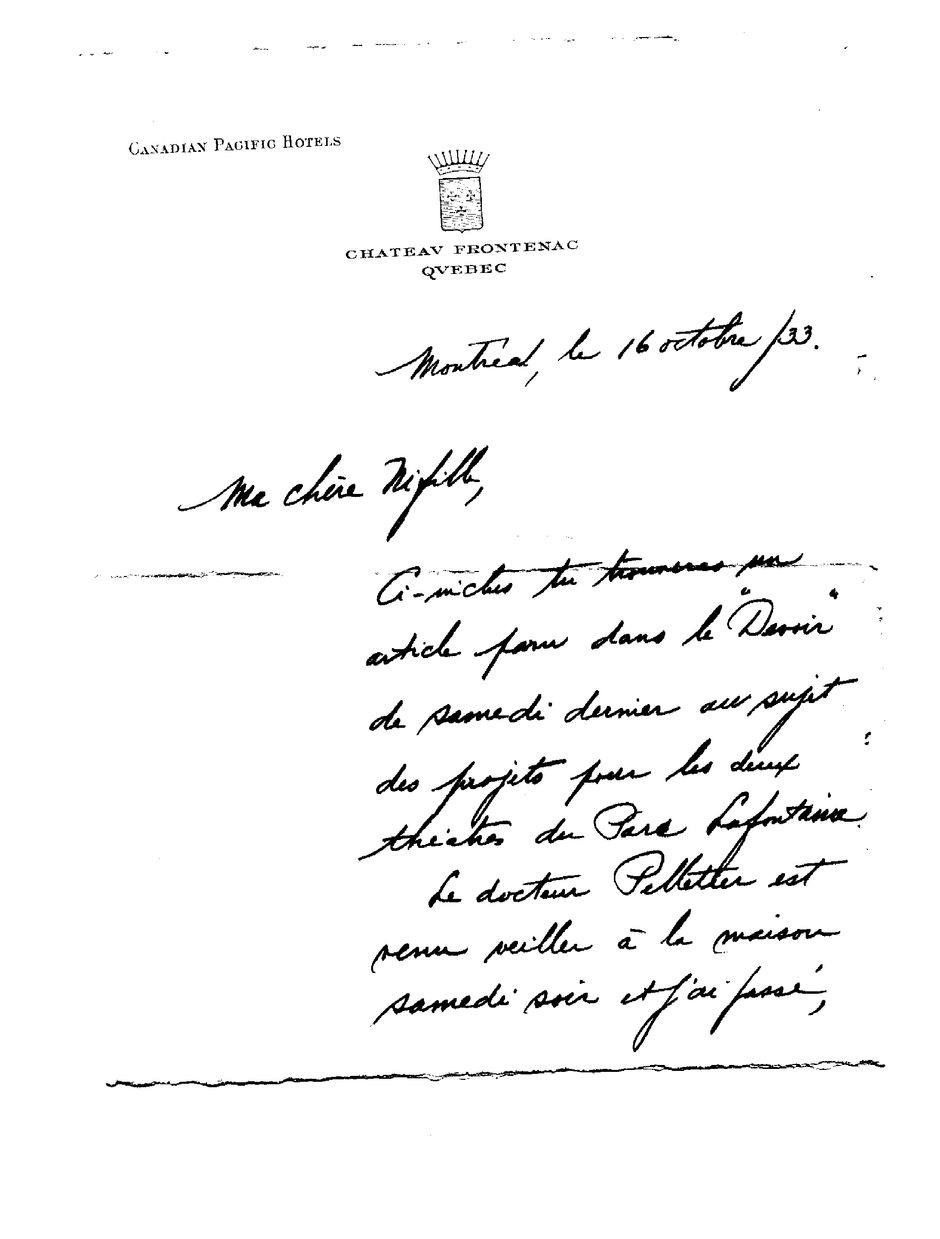 CANADIAN PACIFIC HOTELS
CHATEAV FRONTENAC
QVEBEC
Montreal, le 16 octobre /33.
Ma chère Nifille,
Ci-inclus tu trouveras un
article paru dans le "Devoir"
de samedi dernier au sujet
des projets pour les deux
théâtres du Parc Lafontaine.
Le docteur Pelletier est
venu veiller à la maison
samedi soir et j'ai passé,